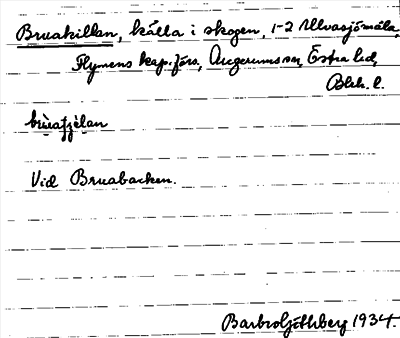 Bruakillan, källa i skogen, 1-2 Ulvasjömåla,
Flymens kap.förs, Augerums sn, Östra hd,
Blek. l.
Vid Bruabacken.
Barbro Göthberg 1934.